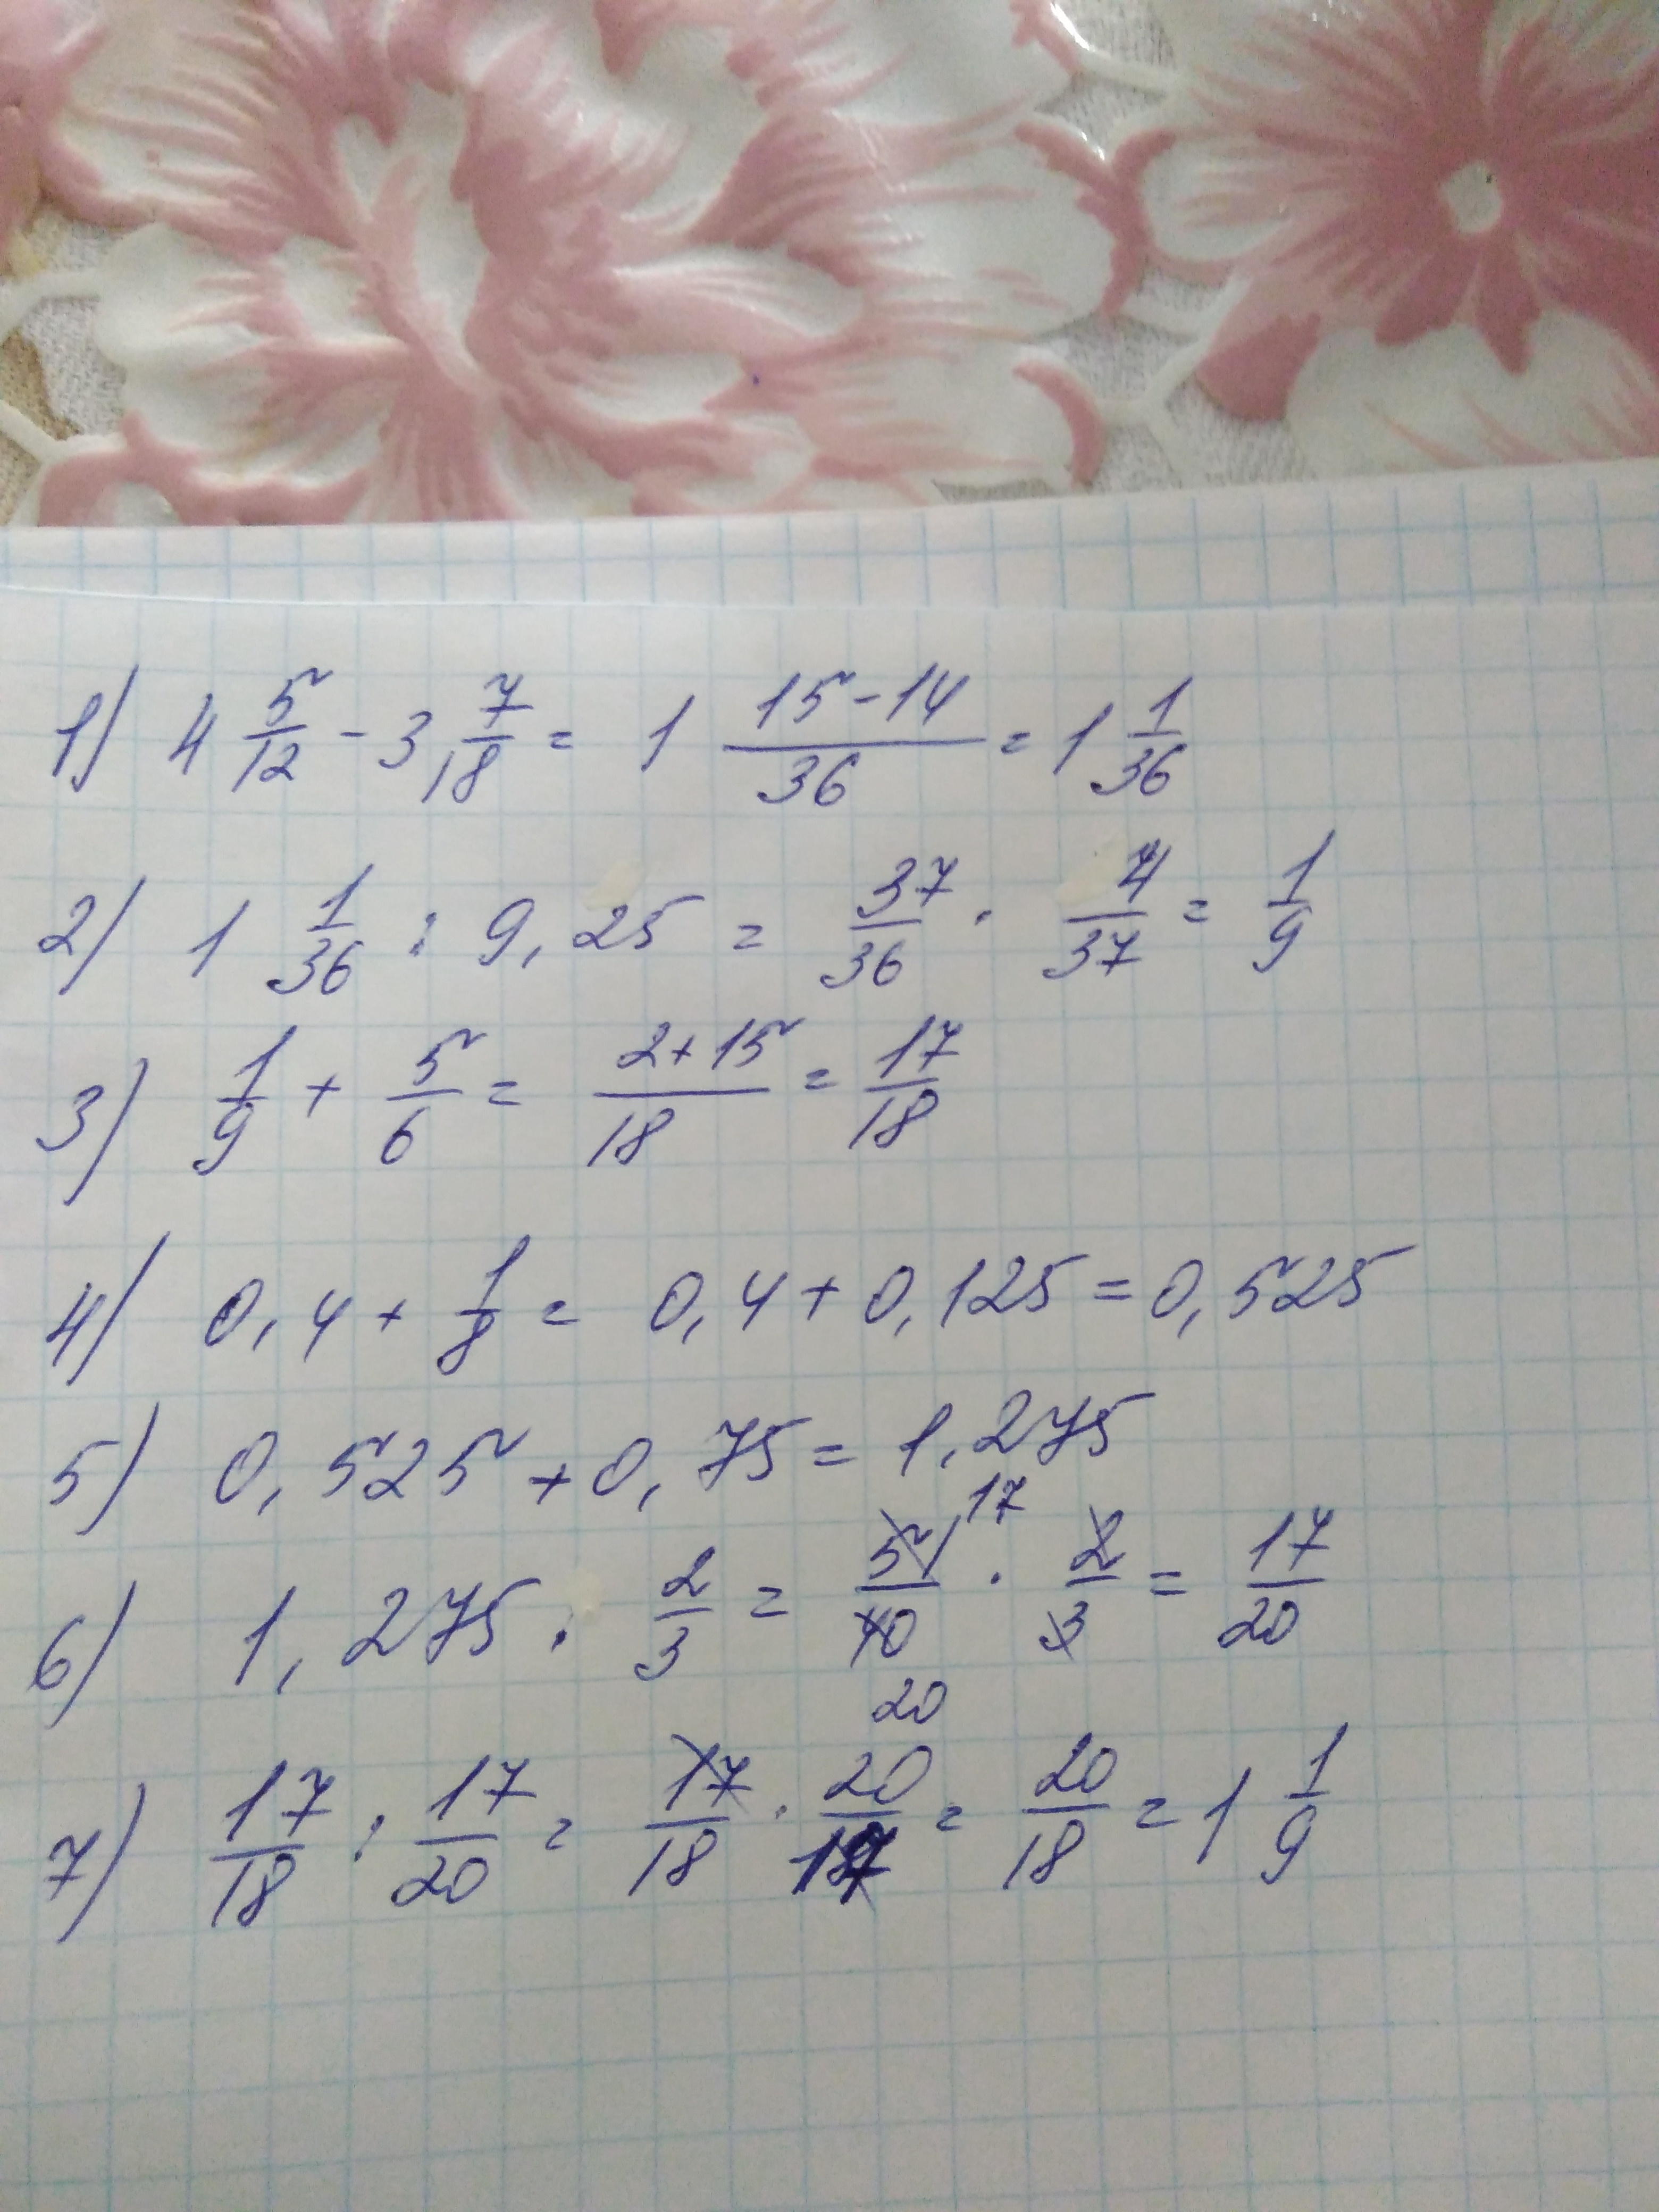 1) 4 5/12 - 3 7/18 = 1 (15-14)/36 = 1 1/36
2) 1 1/36 : 9,25 = 37/36 · 4/37 = 1/9
3) 1/9 + 5/6 = (2+15)/18 = 17/18
4) 0,4 + 1/8 = 0,4 + 0,125 = 0,525
5) 0,525 + 0,75 = 1,275
6) 1,275 · 2/3 = 51/40 17 20 · 2/3 = 17/20
7) 17/18 : 17/20 = 17/18 · 20/17 = 20/18 = 1 1/9